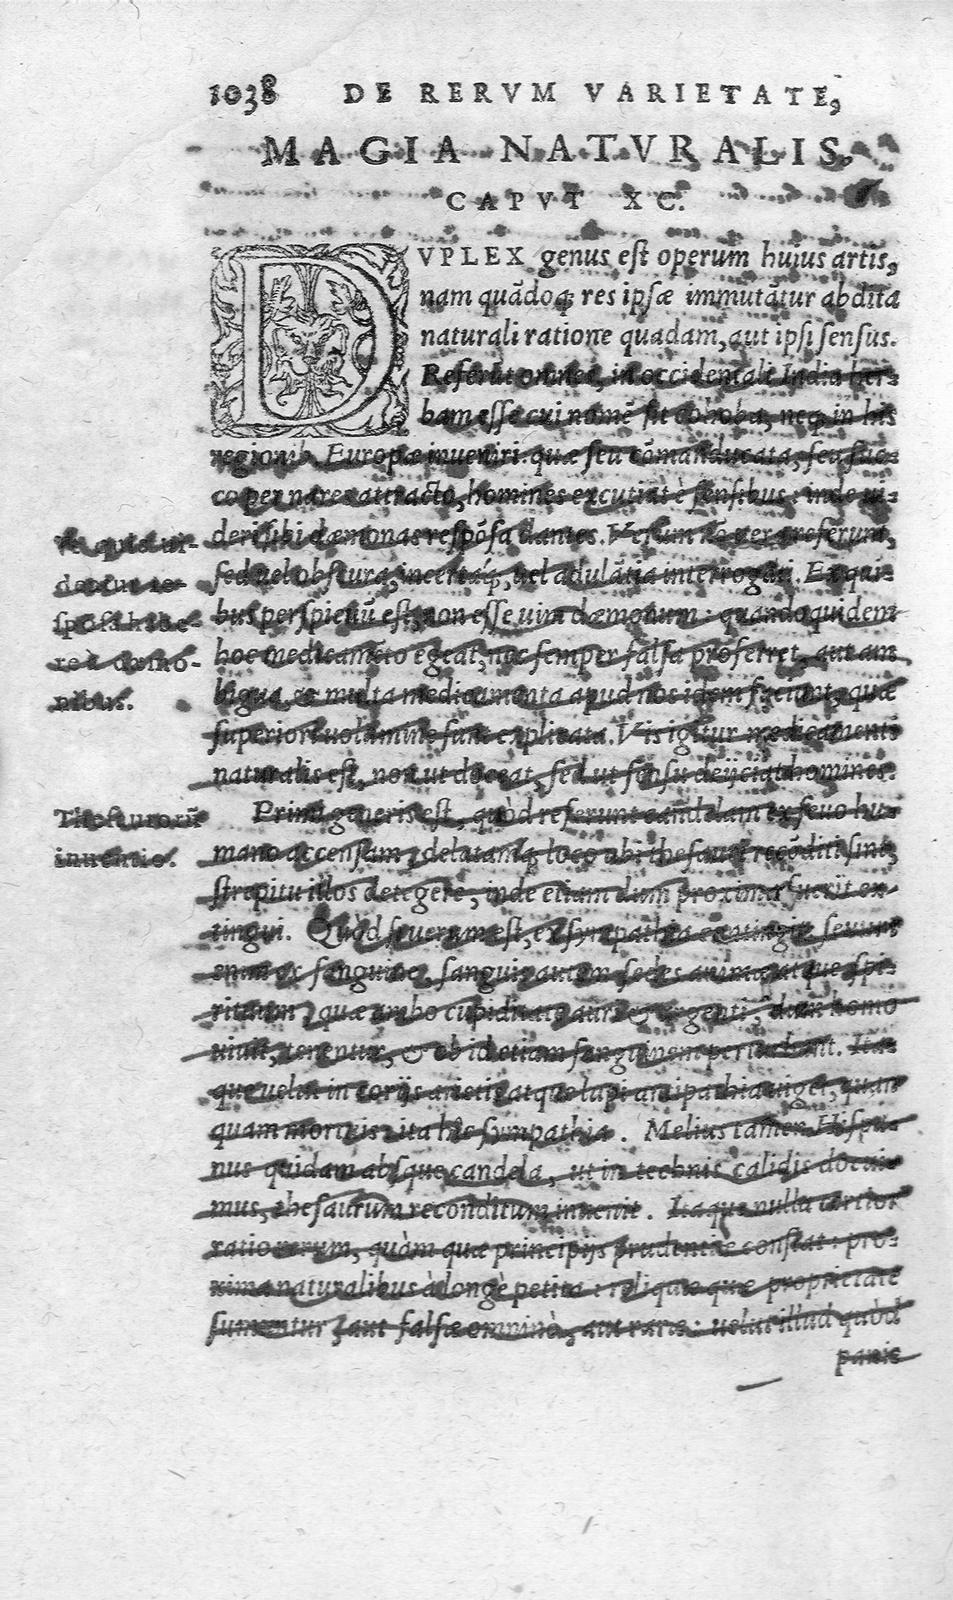 1038 DE RERVM VARIETATE,
MAGIA NATVRALIS.
CAPVT XC.
DVPLEX genus est operum huius artis,
nam quãdoq; res ipsæ immutãtur abdita
naturali ratione quadam, aut ipsi sensus.
Referũt omnes, in occidentali India her-
bam esse cui nomẽ sit cohoba, neq; in his
regionib. Europæ inueniri: quæ seu cõmanducata, seu suc-
co per nares attracto, homines excutiat è sensibus: inde ui-
deri sibi dæmonas respõsa dantes. Verum nõ uera referunt,
sed uel obscura, incertaq́;, uel adulãtia interrogãti. Ex qui-
bus perspicuũ est, non esse uim dæmonum: quandoquidem
hoc medicamẽto egeat, nec semper falsa proferret, aut am
bigua. & multa medicamenta apud nos idem faciunt, quæ
superiori uolumine sunt explicata. Vis igitur medicamenti
naturalis est, non ut doceat, sed ut sensu deijciat homines.
Vt quid ui-
deatur re-
spõsa habe-
re à dæmo-
nibus.
Primi generis est, quòd referunt candelam ex seuo hu-
mano accensam, delatamq; loco ubi thesauri recõditi sint,
strepitu illos detegere, inde etiam dum proxima fuerit ex-
tingui. Quòd si uerum est, ex sympathia contingit: seuum
enim ex sanguine, sanguis autem sedes animæ atque spi-
rituum, quæ ambo cupiditate auri & argenti, dum homo
uiuit, tenentur, & ob id etiam sanguinem perturbant. Ita-
que uelut in corijs arietis atque lupi antipathia uiget, quan
quam mortuis: ita hîc sympathia. Melius tamen Hispa
nus quidam absque candela, ut in technis calidis docui-
mus, thesaurum reconditum inuenit. Itaque nulla certior
ratio rerum, quàm quæ principijs prudentiæ constat: pro-
xima naturalibus à longè petita: reliquæ quæ proprietate
sumuntur, aut falsæ omninò, aut raræ: uelut illud quòd
panis
Thesaurorũ
inuentio.